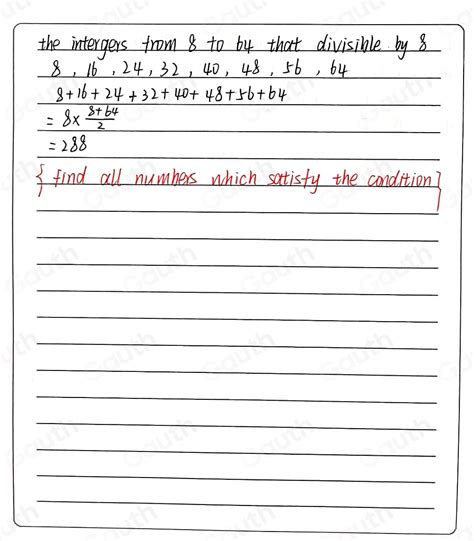 the intergers from 8 to 64 that divisible by 8
8, 16, 24, 32, 40, 48, 56, 64
8+16+24+32+40+48+56+64
= 8× (8+64)/2
= 288
{ find all numbers which satisfy the condition }
Gauth
Gauth
Gauth
Gauth
Gauth
Gauth
Gauth
Gauth